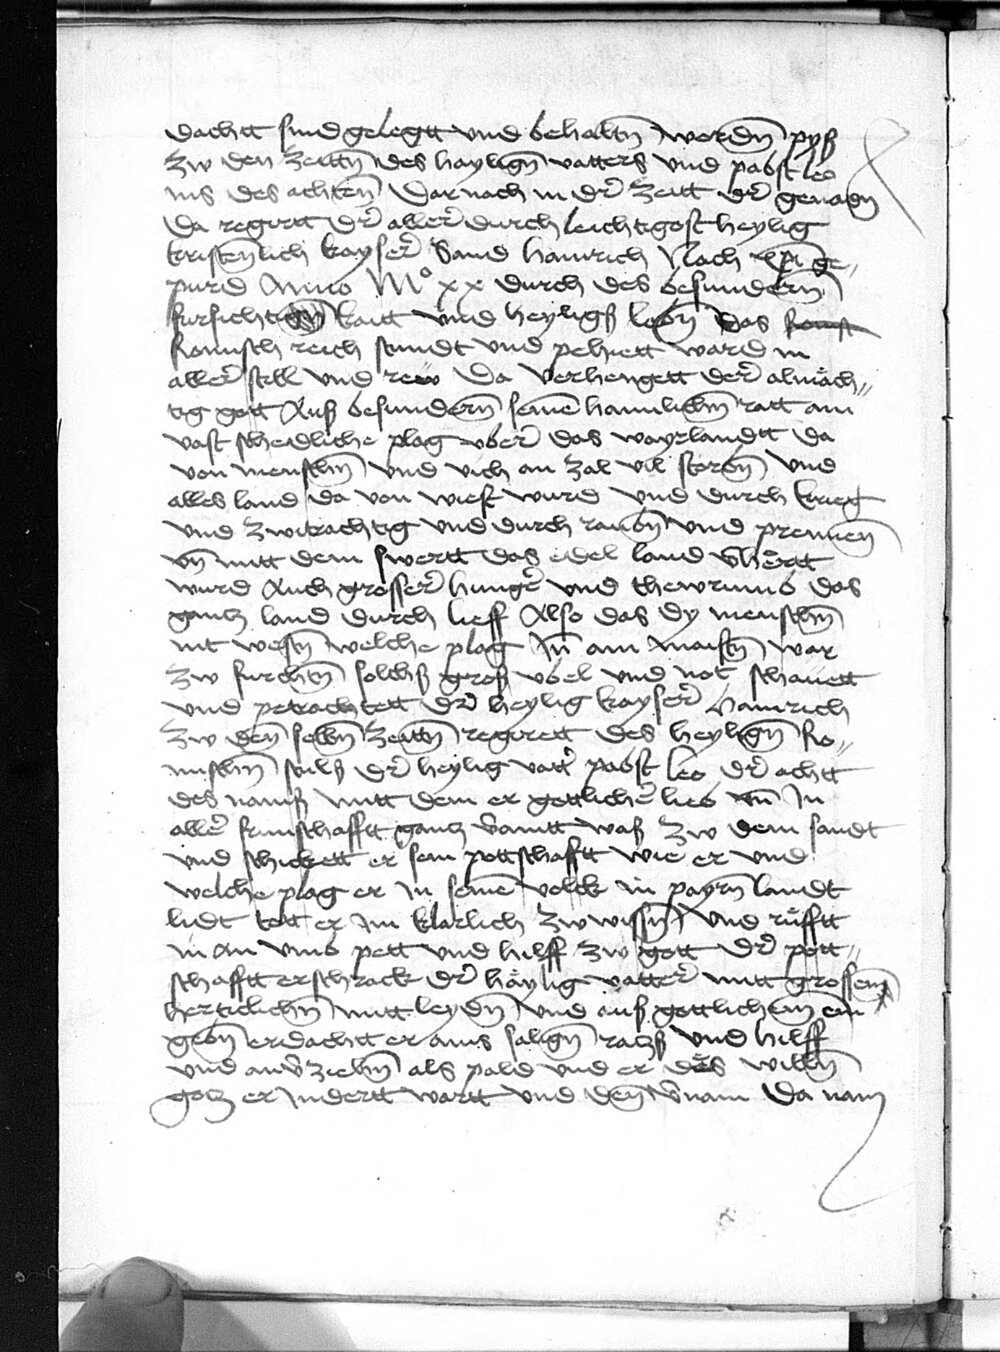 dachtt sind gelegtt vnd behaltn werdn pyß
Zw den Zeittn des haylign vatters vnd pabst leo
nis des achten Dar nach in dr Zeitt dr genadn
da regirtt dr aller durch leichtigost heylig
kristenlich kayser Sannd hainrich Nach xpi ge„
purd Anno M° xx durch des besundern
fursichtign kaitt vnd heyligß lebn das
Romisch reich stundt vnd pehiett ward in
aller still vnd rew Da verhengett der almäch„
tig gott Auß besundern seine hamlichn ratt ain
vast schedliche plag vber das bayrlandtt da
von menschn vnd vich an Zal vil storbn vnd
alles land da von wiest wurd vnd durch krieg
vnd Zwitrachtig vnd durch raubn vnd prennen
vn mitt dem swertt das edel land vhertt
wurd Auch grosser hunger vnd thewrung das
gantz land durch lieff Also das dy menschn
nit westn welche plag In am maistn war
Zw furchtn solchß groß vbel vnd not schauett
vnd petrachtett dr heylig kayser hainrich
Zw den selbn Zeittn regirett des heyligh Ro„
mischn stulß dr heylig vattr pabst leo dr achtt
des namß mitt dem er gottlicher lieb vn In
aller frunschafftt gantz vaintt waß Zw dem sandt
vnd schickett er sein pottschafftt wie er vnd
welche plag er In seine volck in payrn landt
lidt tett er Im klarlich Zw wissn vnd rufftt
in an vmb pett vnd hilff Zw gott dr pott„
schafftt erschrack dr häylig vatter mitt grossem
hertzlichn mitt leydn vnd auß gottlichem ein
gebn erdachtt er ains saligh ratzß vnd hilff
vnd an vZiehn als pald vnd er des willn
gotz er Indertt wartt vnd den vnam Da nam